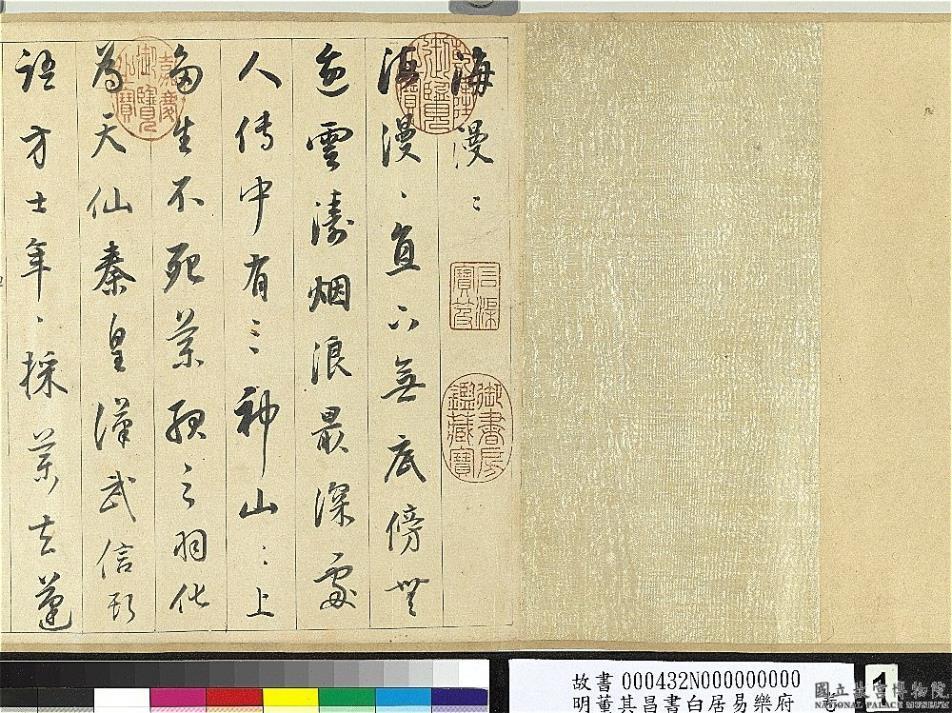 海漫〻
海漫〻直下無底傍無
邊雲濤烟浪最深處
人傳中有三神山〻上
多生不死藥服之羽化
為天仙秦皇漢武信此
語方士年〻採藥去蓬
乾隆御覽之寶
石渠寶笈
御書房鑑藏寶
嘉慶御覽之寶
故書 000432N000000000
明董其昌書白居易樂府 卷
1
國立故宮博物院
NATIONAL PALACE MUSEUM